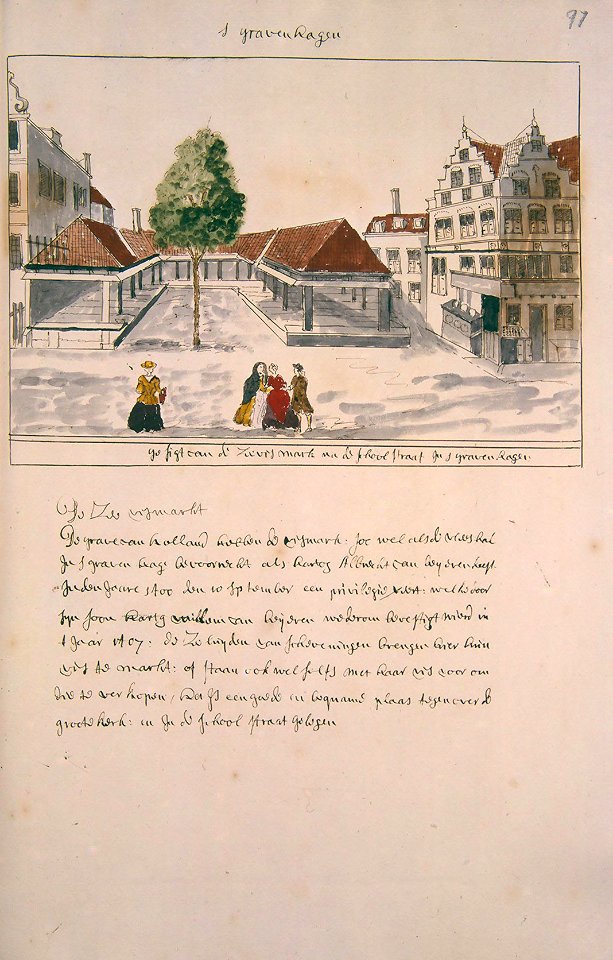 97
s gravenhagen
gesigt van de Zeevis mark na de school straat in s gravenhagen
De Zee vismarkt
De grave van holland hebben de vismark: soo wel als de vleeshal
In s graven hage bevoorrecht als hartog Albrecht van beijeren heeft
In den Jaare 1400 den 10 september een privilegie : welke door
sijn soon hartog willem van beijeren wederom bevestigt wierd in
t Jaar 1407: de Zeluijden van scheveningen brengen hier hun
vis te markt: of staan ook wel selfs met haar vis voor om
die te verkopen, het Is een goede en bequame plaas tegen over de
groote kerk: en In de school straat gelegen